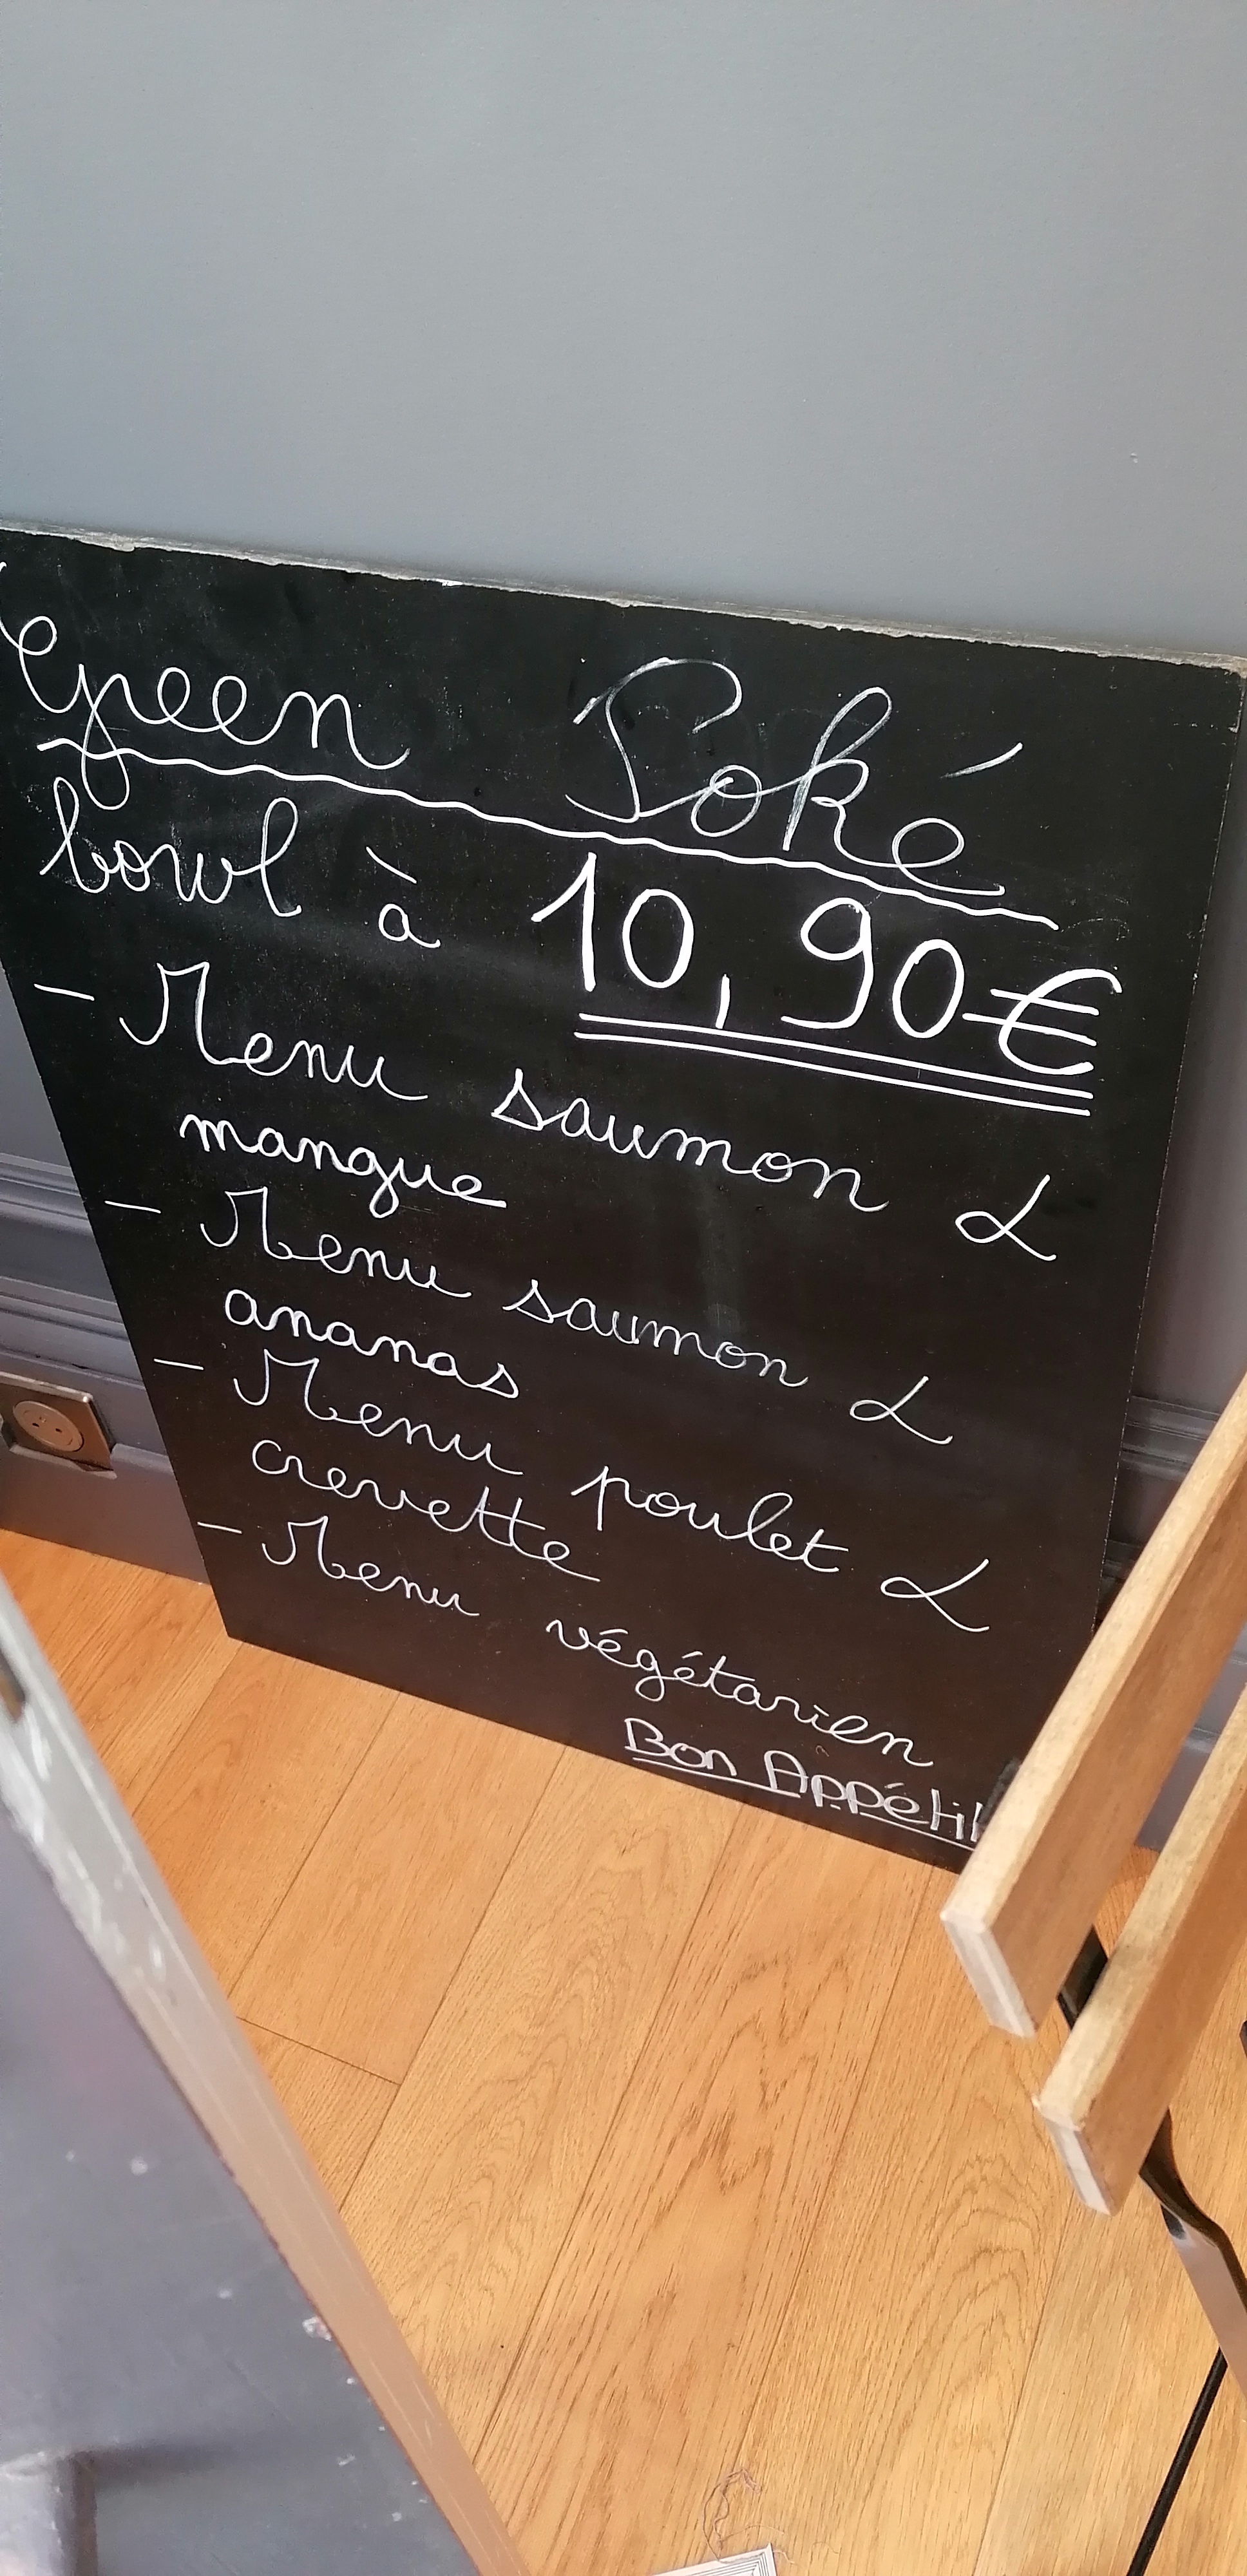 Green Poké
bowl à 10,90€
- Menu saumon &
mangue
- Menu saumon &
ananas
- Menu poulet &
crevette
- Menu végétarien
Bon Appétit